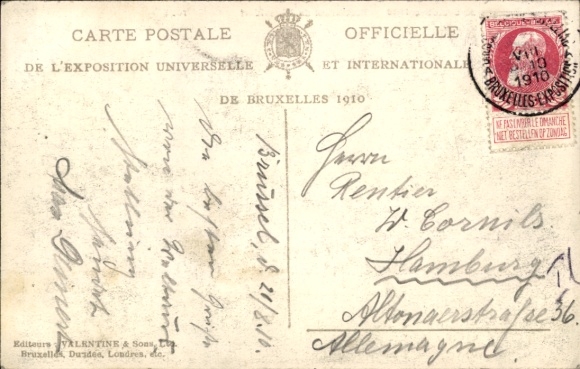 CARTE POSTALE OFFICIELLE
DE L'EXPOSITION UNIVERSELLE ET INTERNATIONALE
DE BRUXELLES 1910
BELGIQUE
VIII
10
1910
BRUXELLES-EXPOSITION
NE PAS LIVRER LE DIMANCHE
NIET BESTELLEN OP ZONDAG
Brüssel, d. 21/8.10.
Die besten Grüße
von der Weltaus
stellung
sendet
Herrn
Rentier
W. Cornils.
Hamburg
Altonaerstraße 36.
Allemagne.
Editeurs: VALENTINE & Sons, Ltd.
Bruxelles, Dundée, Londres, etc.